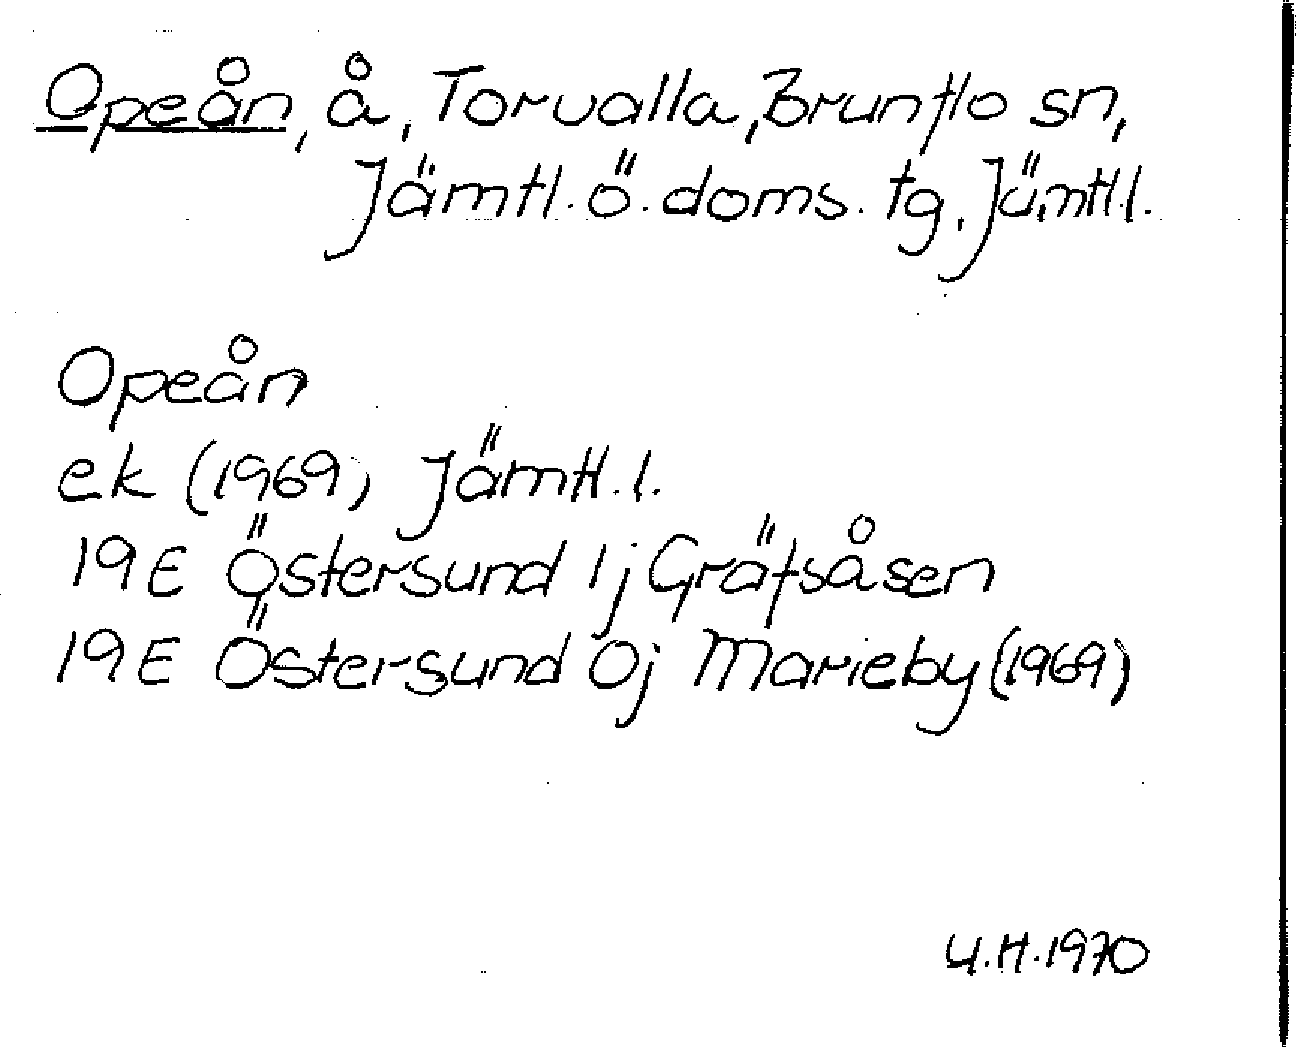 Opeån, å, Torvalla, Brunflo sn,
Jämtl. ö. doms. tg, Jämtl.l.
Opeån
ek (1969) Jämtl. l.
19E Östersund 1j Gräfsåsen
19E Östersund 0j Marieby (1969)
U.H. 1970